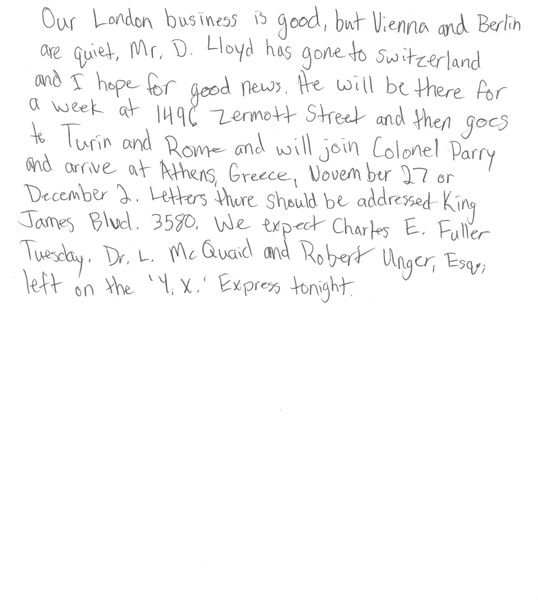 Our London business is good, but Vienna and Berlin
are quiet. Mr. D. Lloyd has gone to Switzerland
and I hope for good news. He will be there for
a week at 1496 Zermott Street and then goes
to Turin and Rome and will join Colonel Parry
and arrive at Athens, Greece, November 27 or
December 2. Letters there should be addressed King
James Blvd. 3580. We expect Charles E. Fuller
Tuesday. Dr. L. McQuaid and Robert Unger, Esq.,
left on the 'Y. X.' Express tonight.